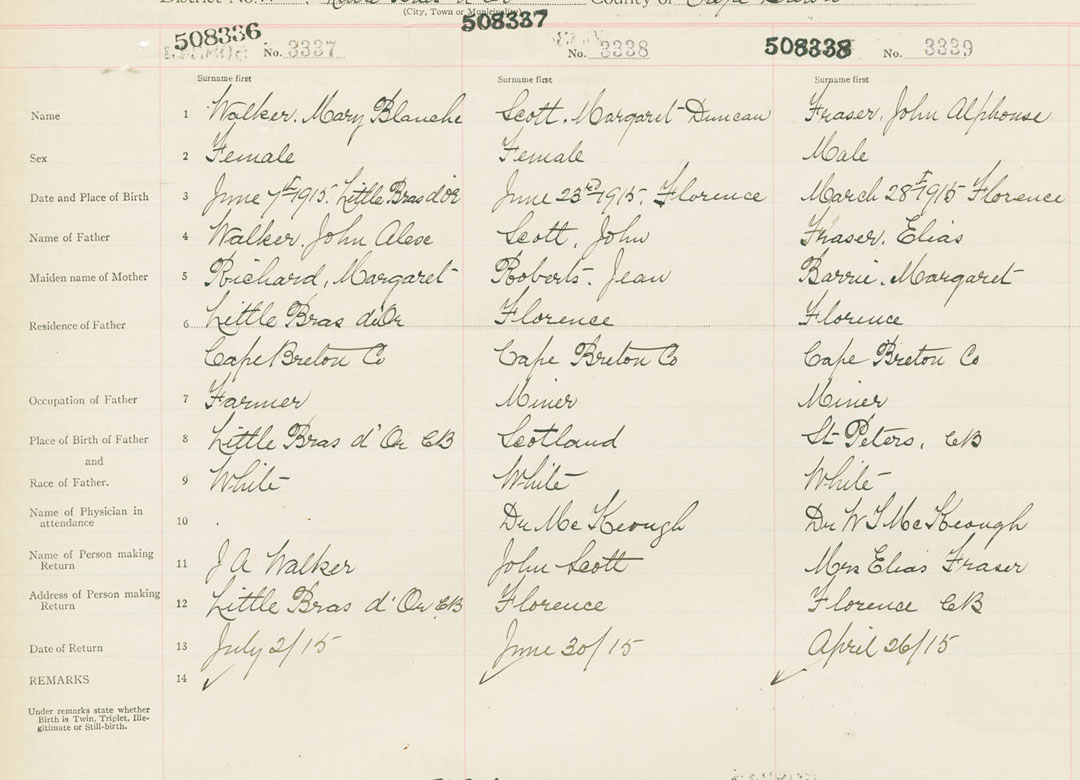 District No. County of Cape Breton
(City, Town or Municipality)
508336 508337 508338
No. 3337 No. 3338 No. 3339
Surname first Surname first Surname first
Name 1 Walker, Mary Blanche Scott, Margaret Duncan Fraser, John Alphonse
Sex 2 Female Female Male
Date and Place of Birth 3 June 7th 1915. Little Bras d'Or June 23rd 1915. Florence March 28th 1915 Florence
Name of Father 4 Walker, John Alex Scott, John Fraser, Elias
Maiden name of Mother 5 Richard, Margaret Roberts, Jean Barrie, Margaret
Residence of Father 6 Little Bras d'Or Florence Florence
Cape Breton Co Cape Breton Co Cape Breton Co
Occupation of Father 7 Farmer Miner Miner
Place of Birth of Father 8 Little Bras d'Or CB Scotland St Peters, CB
and
Race of Father. 9 White White White
Name of Physician in
attendance 10 Dr McKeough Dr W S McKeough
Name of Person making
Return 11 J A Walker John Scott Mrs Elias Fraser
Address of Person making
Return 12 Little Bras d'Or CB Florence Florence CB
Date of Return 13 July 2/15 June 30/15 April 26/15
REMARKS 14
Under remarks state whether
Birth is Twin, Triplet, Ille-
gitimate or Still-birth.